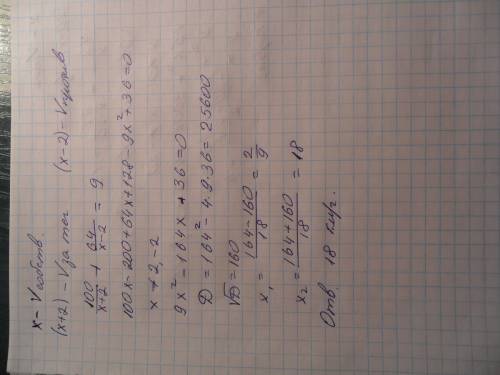 x – Vсобств.
(x+2) – V за теч (x-2) – Vпротив
100/(x+2) + 64/(x-2) = 9
100x-200+64x+128-9x²+36=0
x ≠ 2, -2
9x²-164x+36=0
D=164²-4·9·36=25600
√D=160
x₁ = (164-160)/18 = 2/9
x₂ = (164+160)/18 = 18
Отв. 18 км/г.